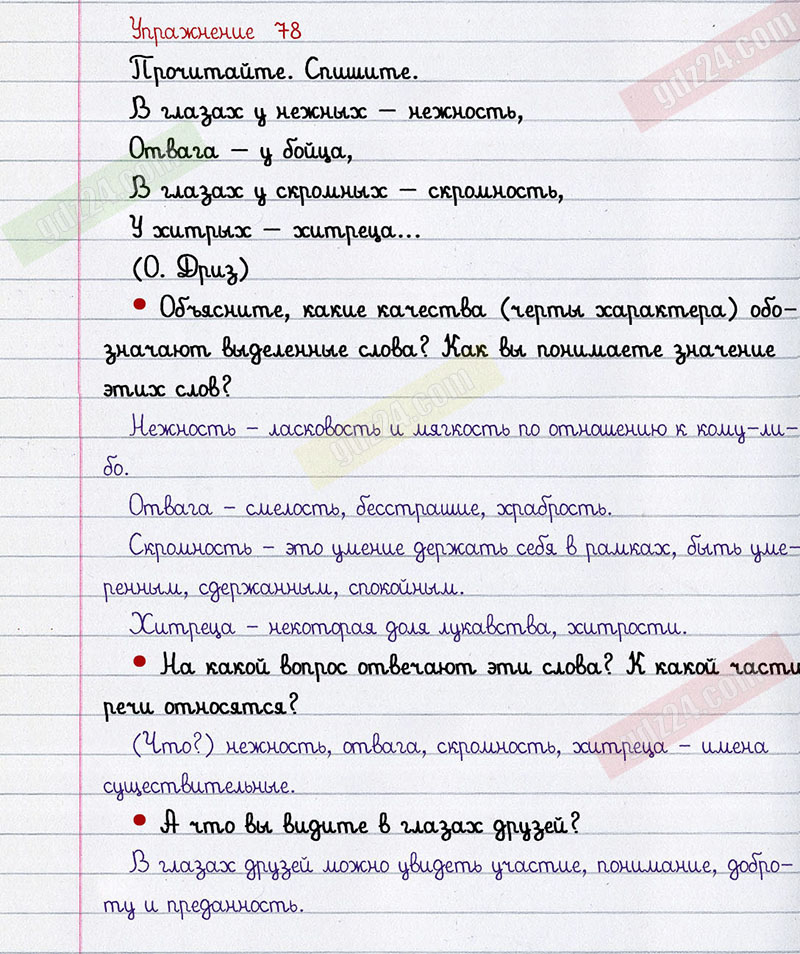 Упражнение 78
Прочитайте. Спишите.
В глазах у нежных – нежность,
Отвага – у бойца,
В глазах у скромных – скромность,
У хитрых – хитреца...
(О. Дриз)
• Объясните, какие качества (черты характера) обо-
значают выделенные слова? Как вы понимаете значение
этих слов?
Нежность – ласковость и мягкость по отношению к кому-ли-
бо.
Отвага – смелость, бесстрашие, храбрость.
Скромность – это умение держать себя в рамках, быть уме-
ренным, сдержанным, спокойным.
Хитреца – некоторая доля лукавства, хитрости.
• На какой вопрос отвечают эти слова? К какой части
речи относятся?
(Что?) нежность, отвага, скромность, хитреца – имена
существительные.
• А что вы видите в глазах друзей?
В глазах друзей можно увидеть участие, понимание, добро-
ту и преданность.
gdz24.com
gdz24.com
gdz24.com
gdz24.com